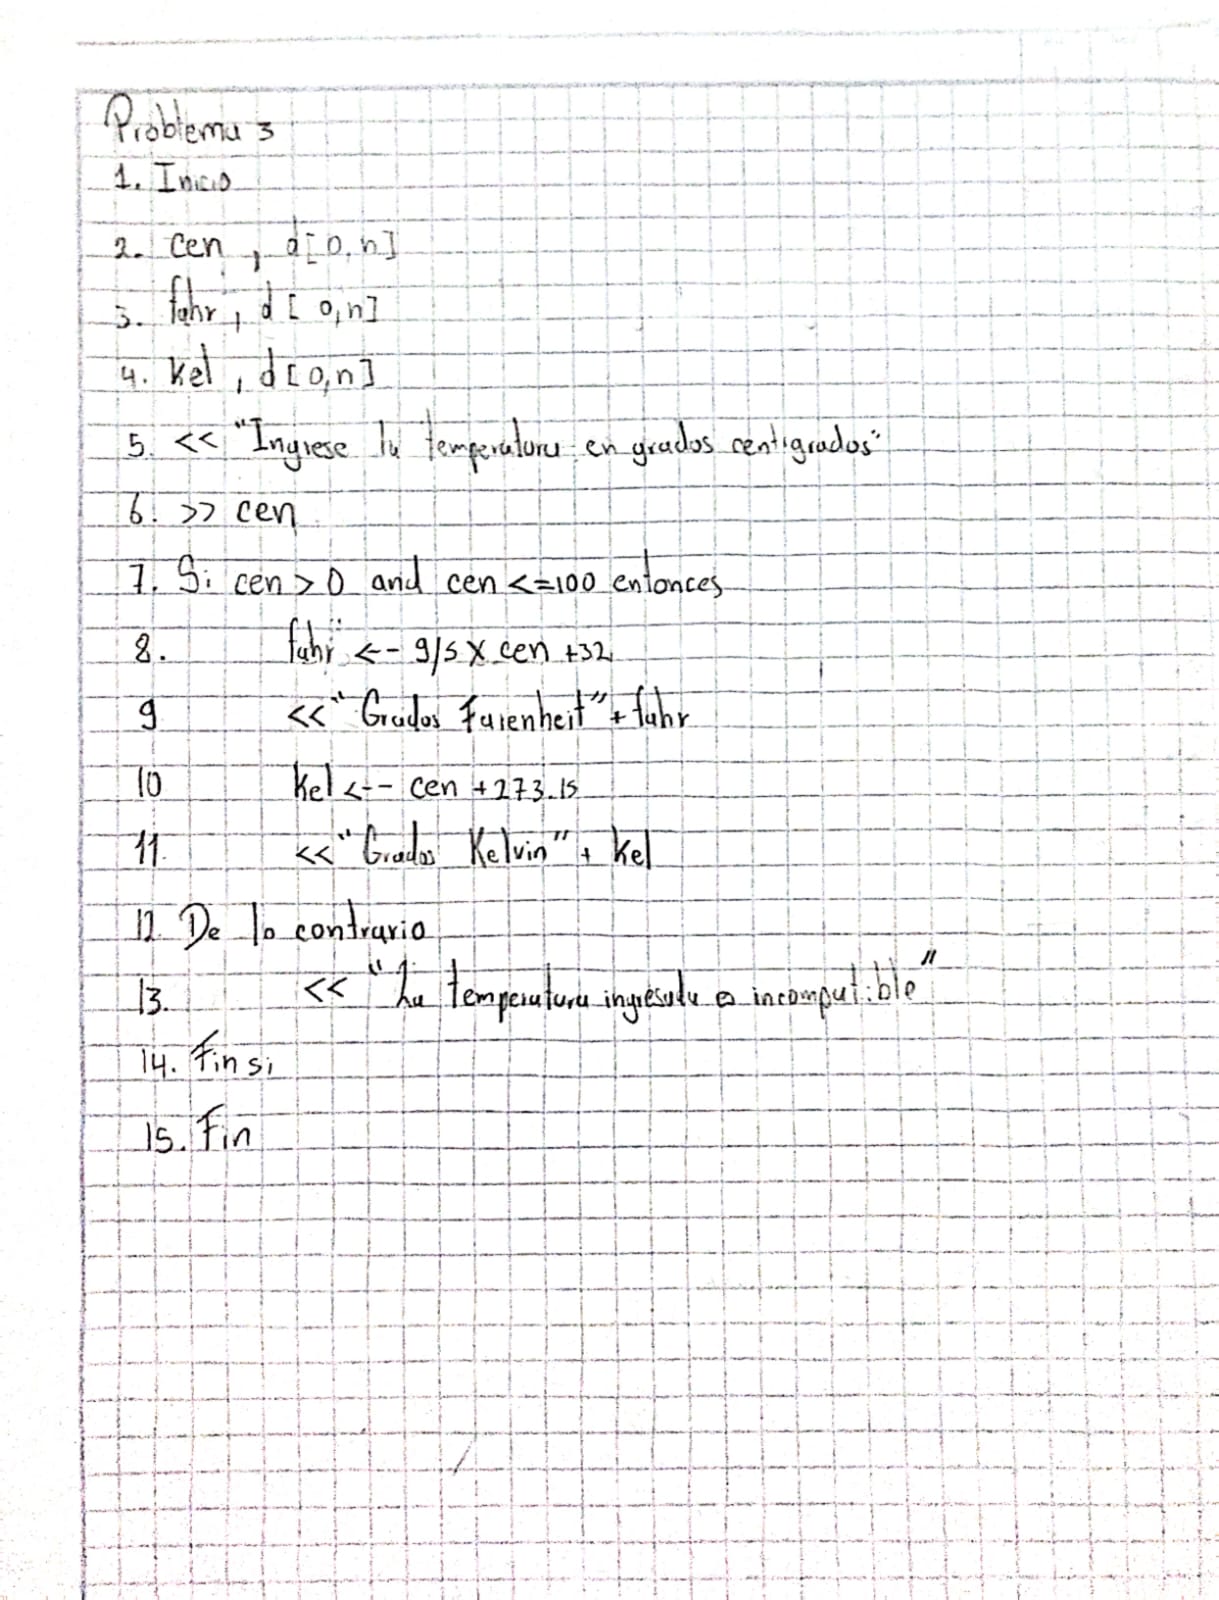 Problema 3
1. Inicio
2. cen , d[0,n]
3. fahr , d [ 0,n]
4. Kel , d[0,n]
5. << "Ingrese la temperatura en grados centigrados"
6. >> cen
7. Si cen > 0 and cen <=100 entonces
8. fahr <-- 9/5 x cen +32
9 << "Grados Farenheit" + fahr
10 Kel <-- cen +273.15
11. << "Grados Kelvin" + Kel
12. De lo contrario
13. << "La temperatura ingresada es incompatible"
14. Fin si
15. Fin